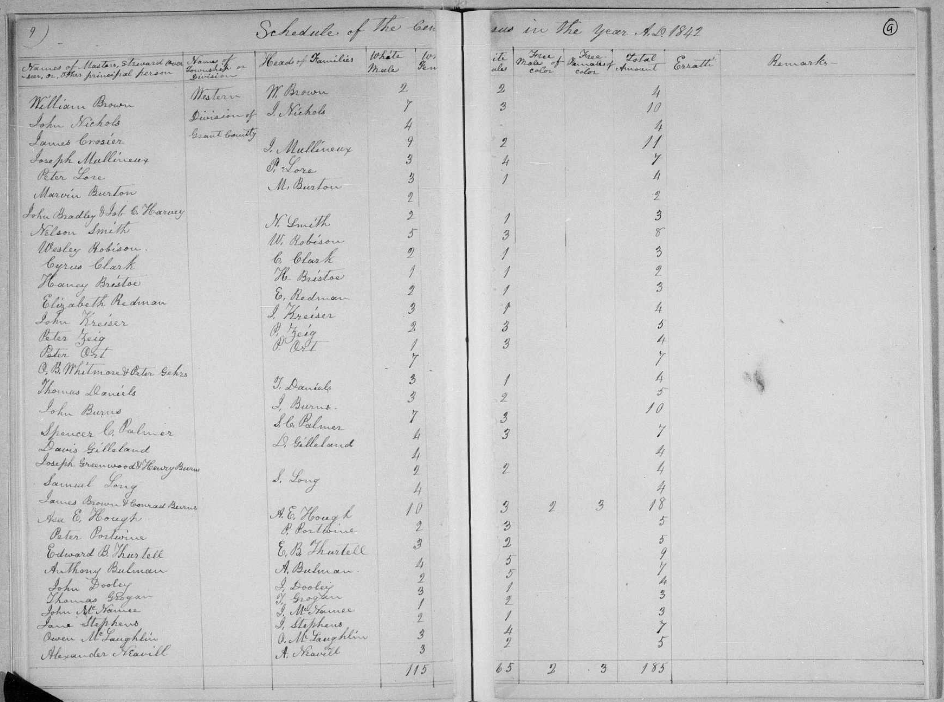 9) Schedule of the Cen sus in the Year A.D 1842 9
Names of Master, Steward Over-
seer, or, other principal person
Names of
Township or
Division
Heads of Families
White
Male
ite
ales
Free
Male of
color
Free
Females of
color
Total
Amount
Erratti
Remarks
William Brown Western W. Brown 2 2 4
John Nichols Division of J. Nichols 7 3 10
James Crosier Grant County 4 - 4
Joseph Mullineux J. Mullineux 9 2 11
Peter Lore P. Lore 3 4 7
Marvin Burton M. Burton 3 1 4
John Bradley & Job C. Harvey 2 2
Nelson Smith N. Smith 2 1 3
Wesley Robison. W. Robison 5 3 8
Cyrus Clark C. Clark 2 1 3
Haney Bristoe H. Bristoe 1 1 2
Elizabeth Redman E. Redman 2 1 3
John Kreiser J. Kreiser 3 1 4
Peter Zeig P. Zeig 2 3 5
Peter Ort P. Ort 1 3 4
O. B. Whitmore & Peter Gehrs 7 7
Thomas Daniels T. Daniels 3 1 4
John Burns J. Burns. 3 2 5
Spencer C. Palmer S. C. Palmer 7 3 10
Davis Gilleland D. Gilleland 4 3 7
Joseph Greenwood & Henry Burns 4 4
Samuel Long S. Long 2 2 4
James Brown & Conrad Burns 4 4
Asa E. Hough A. E. Hough 10 3 2 3 18
Peter Postwine P. Postwine 2 3 5
Edward B. Thurtell E. B. Thurtell 3 2 5
Anthony Bulman A. Bulman. 4 5 9
John Dooley J. Dooley 2 5 7
Thomas Grogan T. Grogan 3 1 4
John McNamee J. McNamee 1 2 3
Jane Stephens J. Stephens 2 1 3
Owen McLaughlin O. McLaughlin 3 4 7
Alexander Neavill A. Neavill 3 2 5
115 65 2 3 185